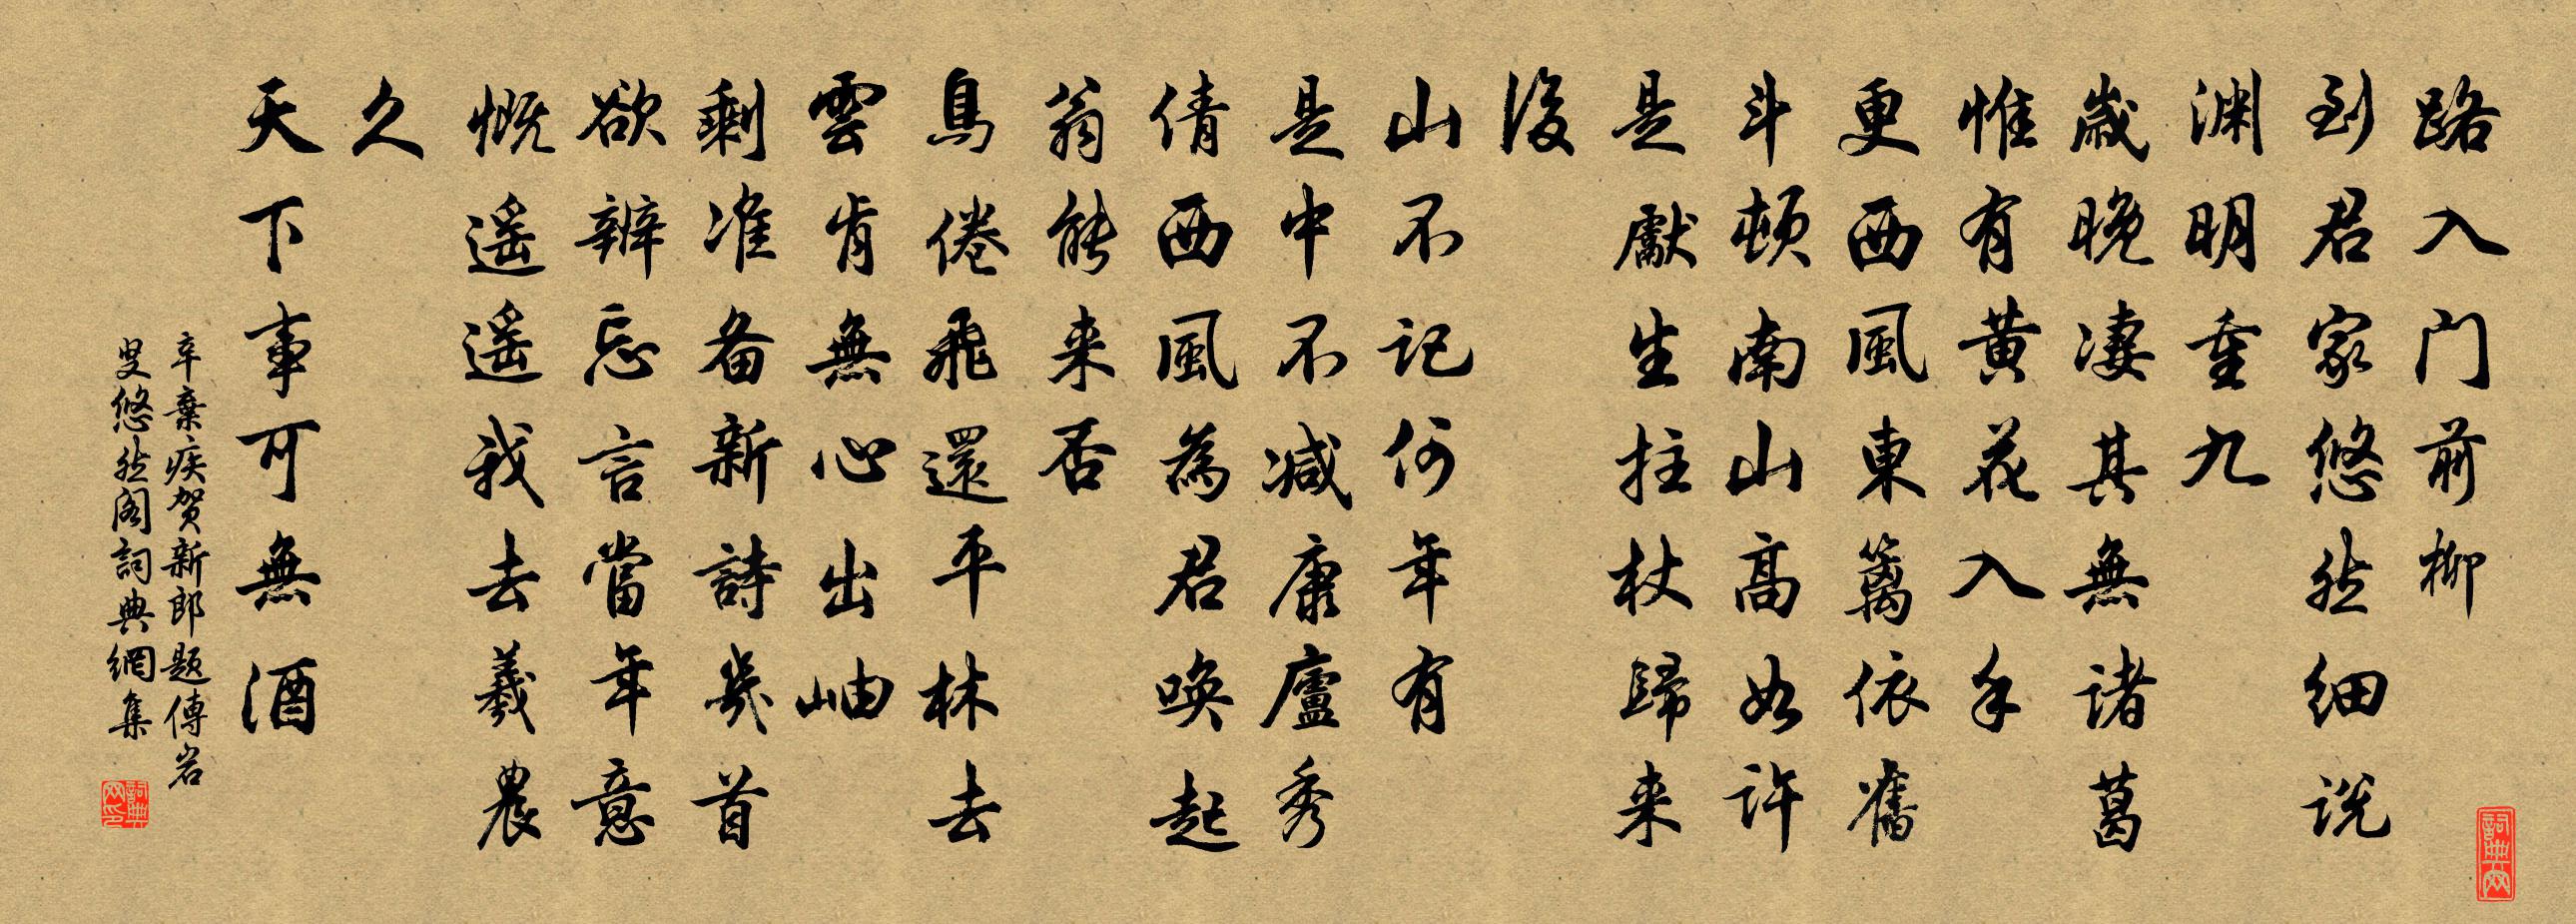 路入门前柳
到君家悠然细说
渊明重九
歲晚凄其無诸葛
惟有黄花入手
更西風東籬依舊
斗頓南山高如许
是獻生拄杖歸来
後
山不记何年有
是中不减康廬秀
倩西風為君唤起
翁能来否
鳥倦飛還平林去
雲肯無心出岫
剩准备新詩幾首
欲辨忘言當年意
慨遥遥我去羲農
久
天下事可無酒
辛棄疾贺新郎题傅岩
叟悠然阁詞典網集
詞典网
詞典网印